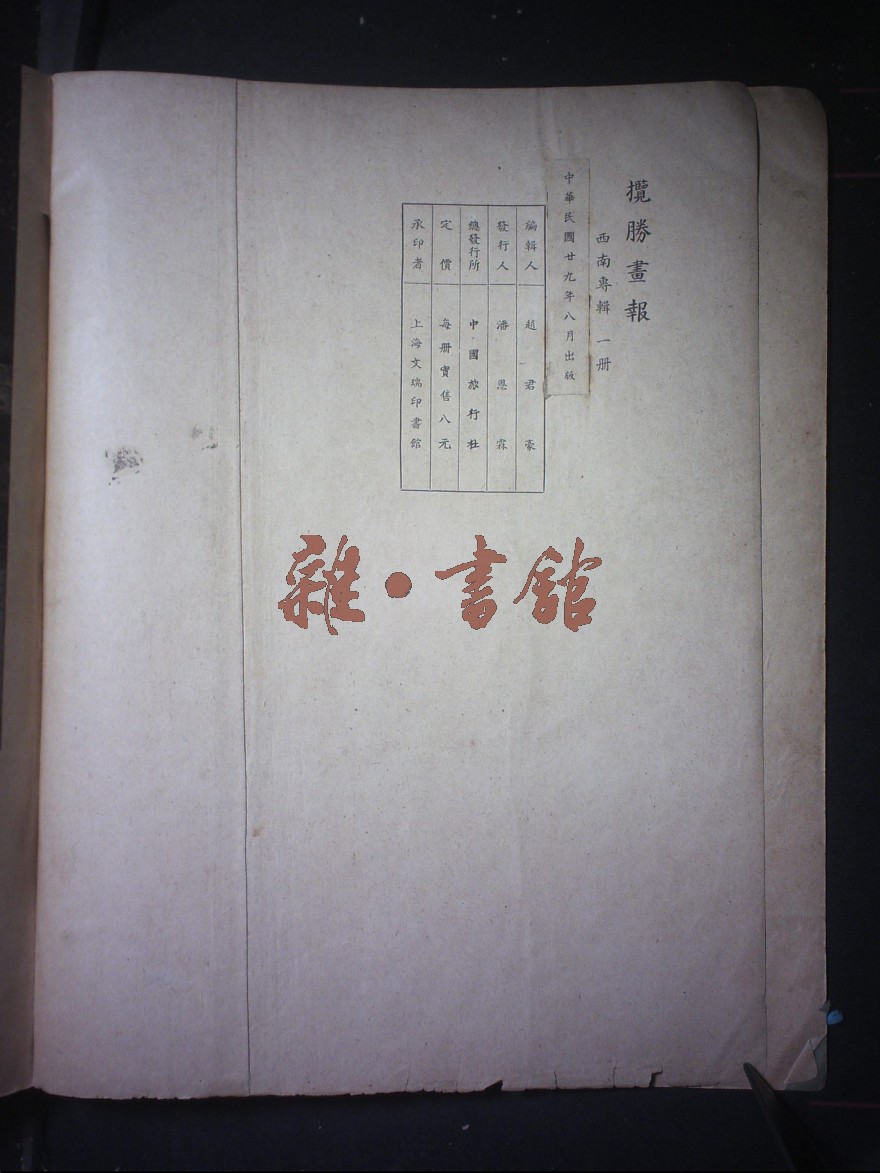 攬勝畫報
西南專輯 一册
中華民國廿九年八月出版
編輯人 趙君豪
發行人 潘恩霖
總發行所 中國旅行社
定價 每册實售八元
承印者 上海文瑞印書館
雜·書館